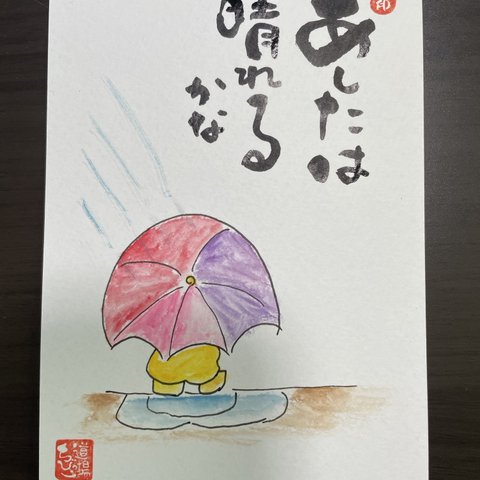 あしたは
晴れる
かな